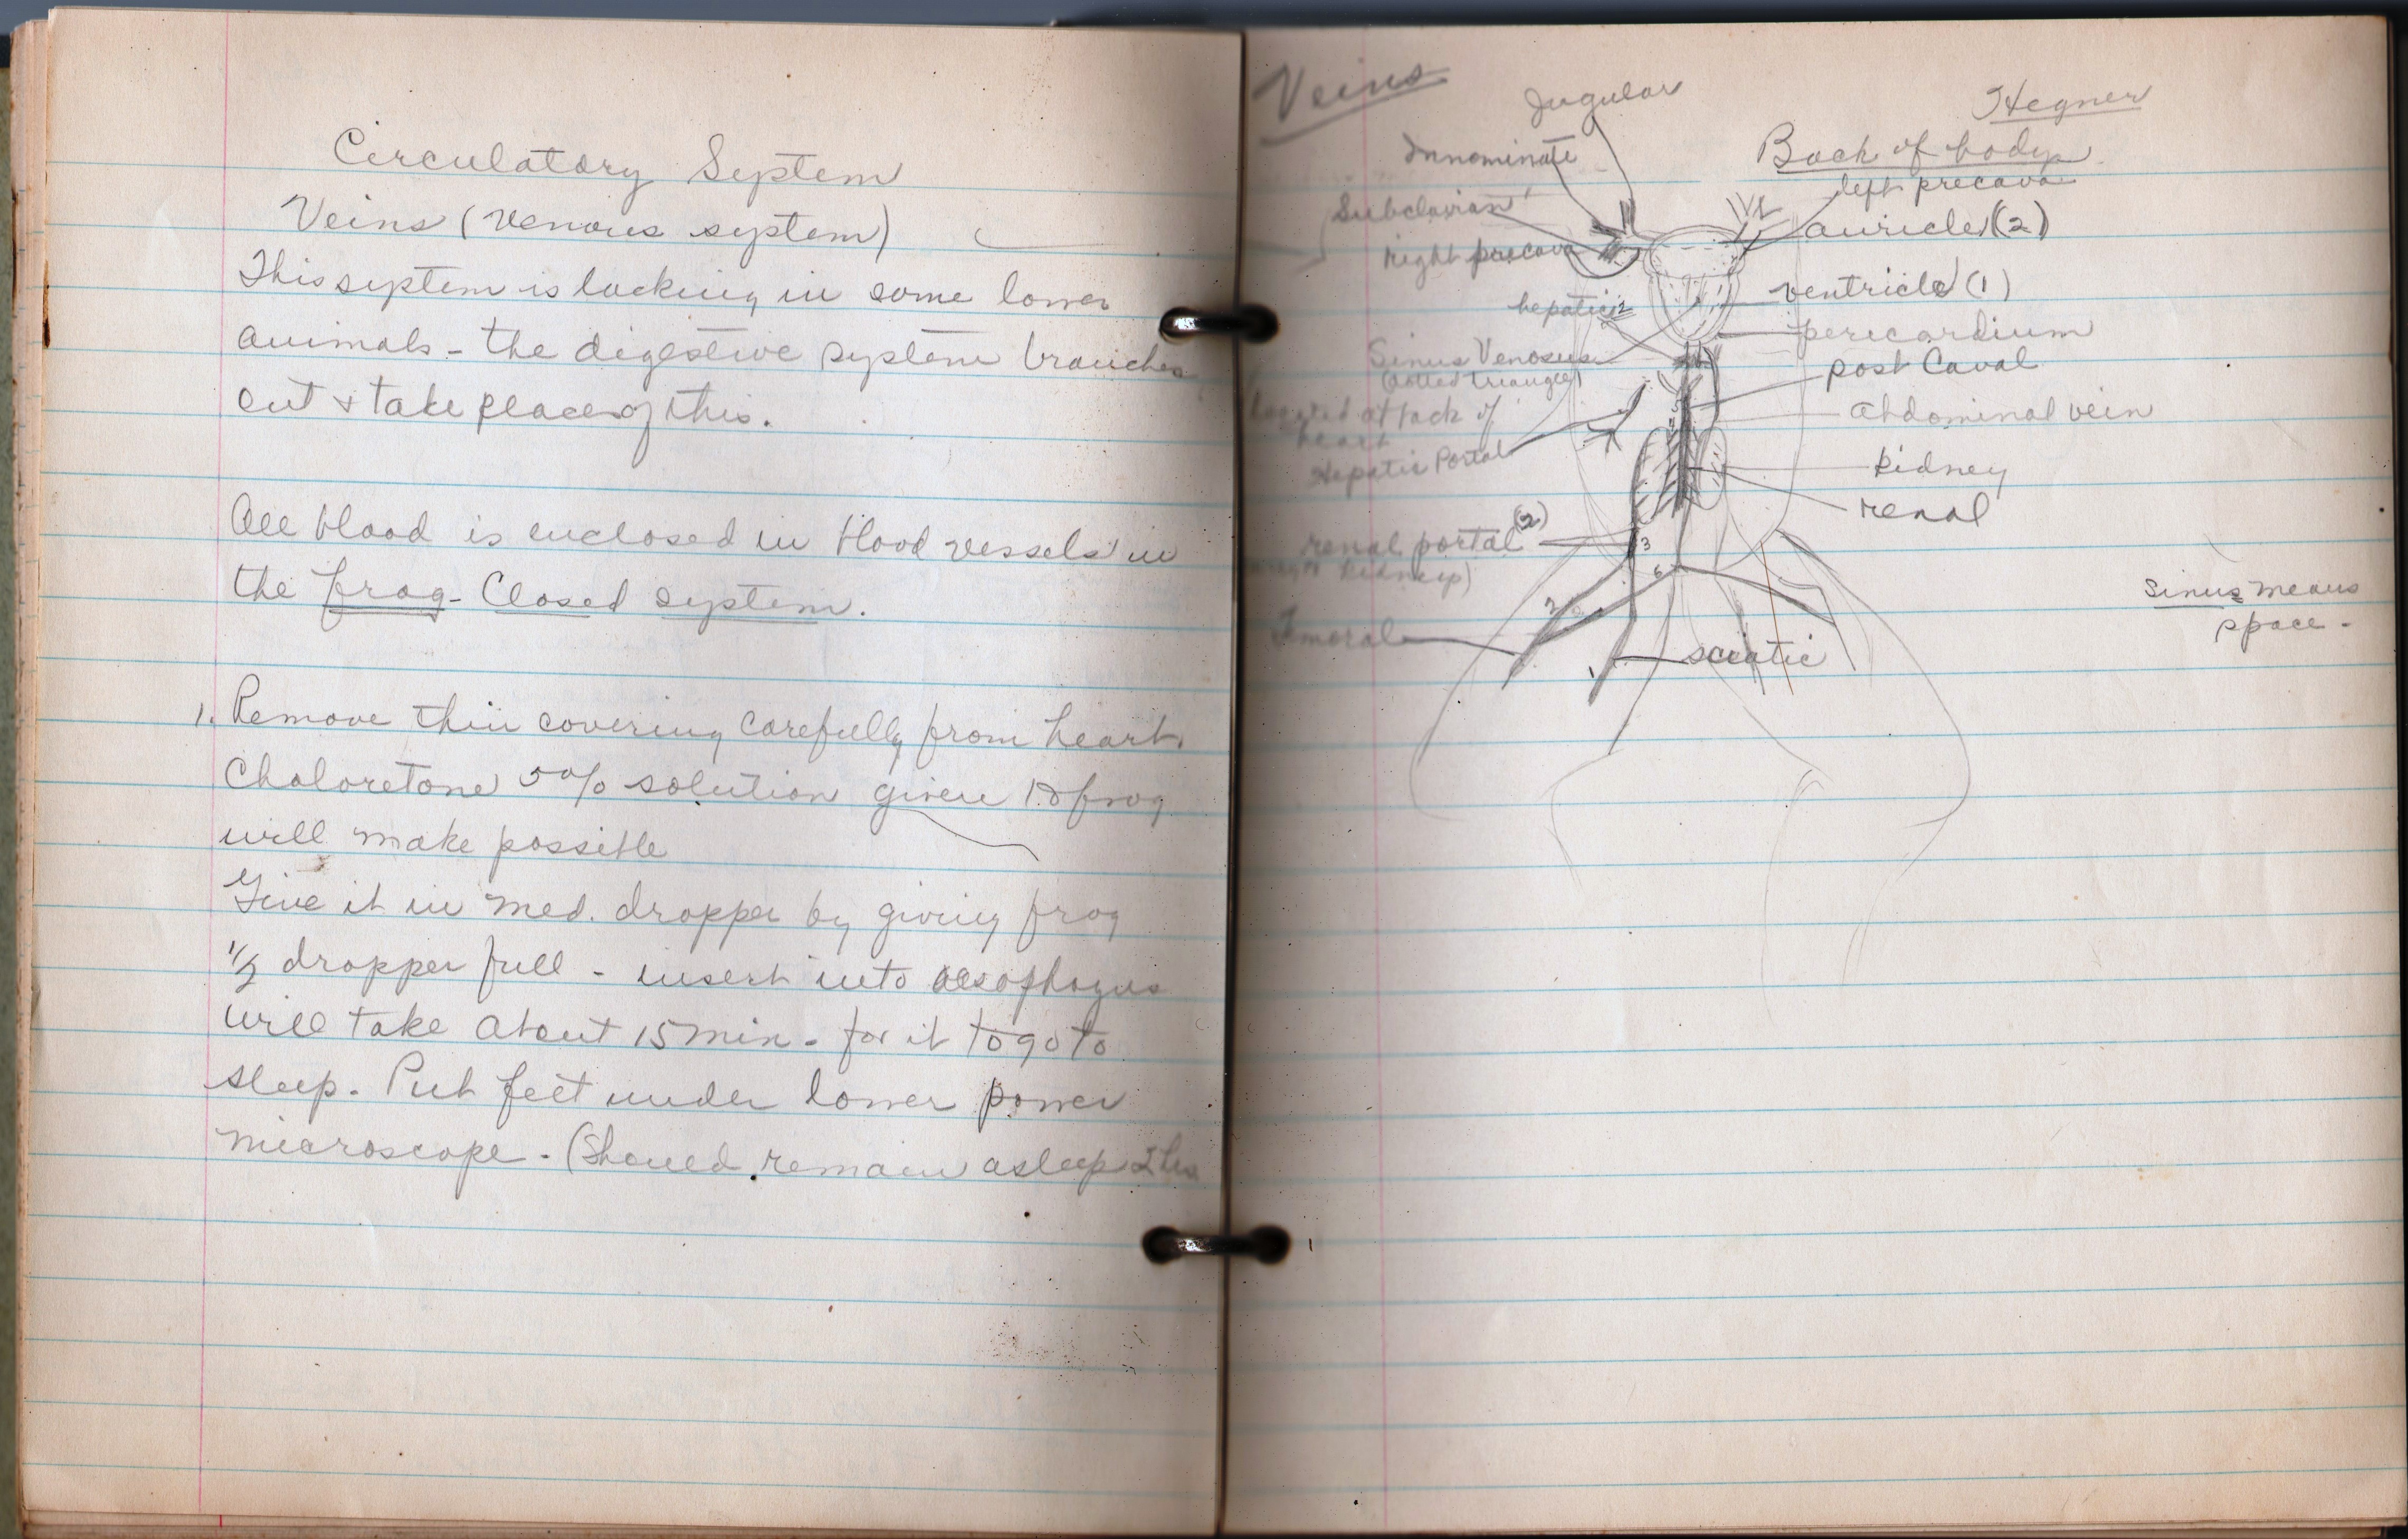 Circulatory System
Veins (Venous system)
This system is lacking in some lower
animals - the digestive system branches
out & take place of this.
All blood is enclosed in blood vessels in
the frog - Closed system.
1. Remove thin covering carefully from heart.
Chaloretone 5% solution given to frog
will make possible
Give it in med. dropper by giving frog
1/2 dropper full - insert into oesophagus
will take about 15 min - for it to go to
sleep. Put feet under lower power
microscope - (Should remain asleep 2 hrs
Veins
Jugular
Hegner
Innominate
Back of body
left precava
Subclavian
auricle (2)
right precava
ventricle (1)
hepatic 2
pericardium
Sinus Venosus
(dotted triangle)
post Caval
located at back of
heart
Abdominal vein
Hepatic Portal
kidney
renal
renal portal (2)
kidneys)
3
6
2
Sinus means
space -
Femoral
sciatic
1